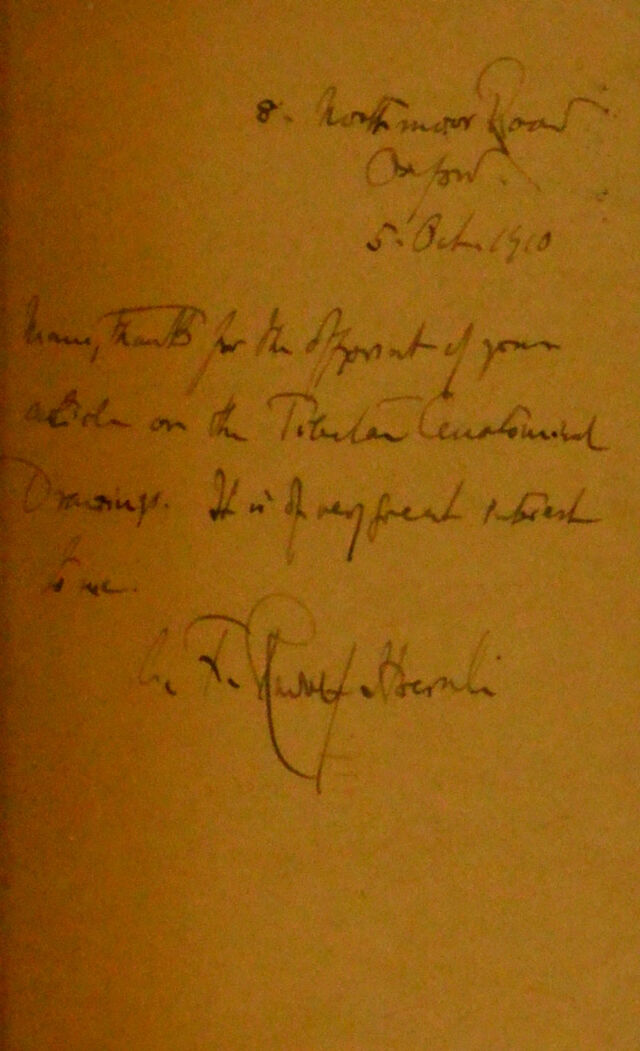 8. Northmoor Road
Oxford.
5. Oct. 1910
Many thanks for the offprint of your
article on the Tibetan Anatomical
Drawings. It is of very great interest
to me.
A. F. Rudolf Hoernle